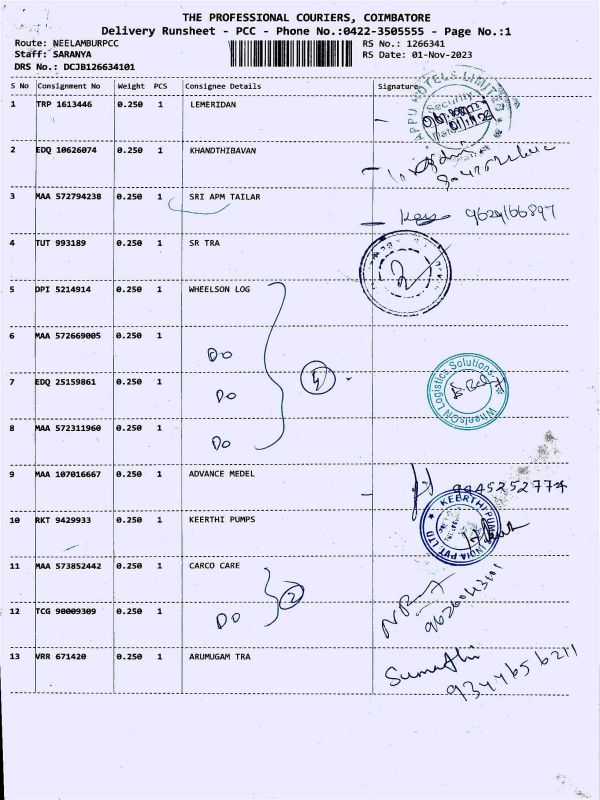 THE PROFESSIONAL COURIERS, COIMBATORE
Delivery Runsheet - PCC - Phone No.:0422-3505555 - Page No.:1
Route: NEELAMBURPCC
Staff: SARANYA
DRS No.: DCJB126634101
RS No.: 1266341
RS Date: 01-Nov-2023
S No Consignment No Weight PCS Consignee Details Signature
1 TRP 1613446 0.250 1 LEMERIDAN
APPU HOTELS LIMITED
Security
2 EDQ 10626074 0.250 1 KHANDTHIBAVAN
3 MAA 572794238 0.250 1 SRI APM TAILAR
9629166897
4 TUT 993189 0.250 1 SR TRA
5 DPI 5214914 0.250 1 WHEELSON LOG
6 MAA 572669005 0.250 1
Do
7 EDQ 25159861 0.250 1
Do
4
WheelsON Logistics Solutions
8 MAA 572311960 0.250 1
Do
9 MAA 107016667 0.250 1 ADVANCE MEDEL
9945252774
10 RKT 9429933 0.250 1 KEERTHI PUMPS
KEERTHI PUMPS INDIA PVT LTD
11 MAA 573852442 0.250 1 CARCO CARE
2
12 TCG 90009309 0.250 1
Do
13 VRR 671420 0.250 1 ARUMUGAM TRA
Sumathi
9344656211